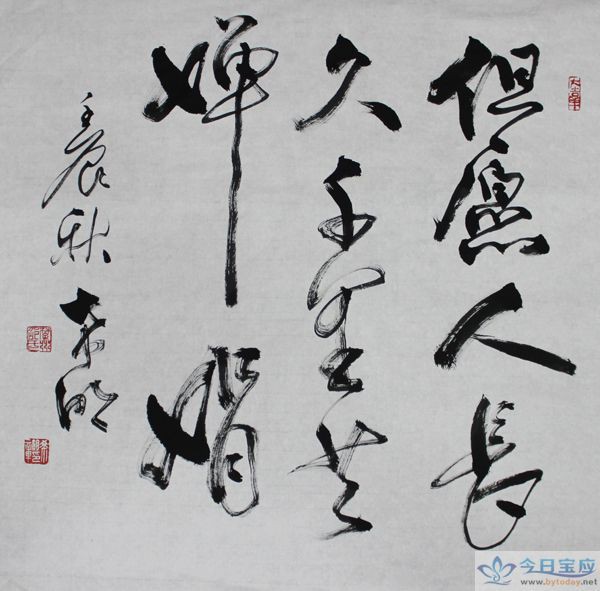 但愿人長
久千里共
婵娟
壬辰秋
今日宝应
www.bytoday.net